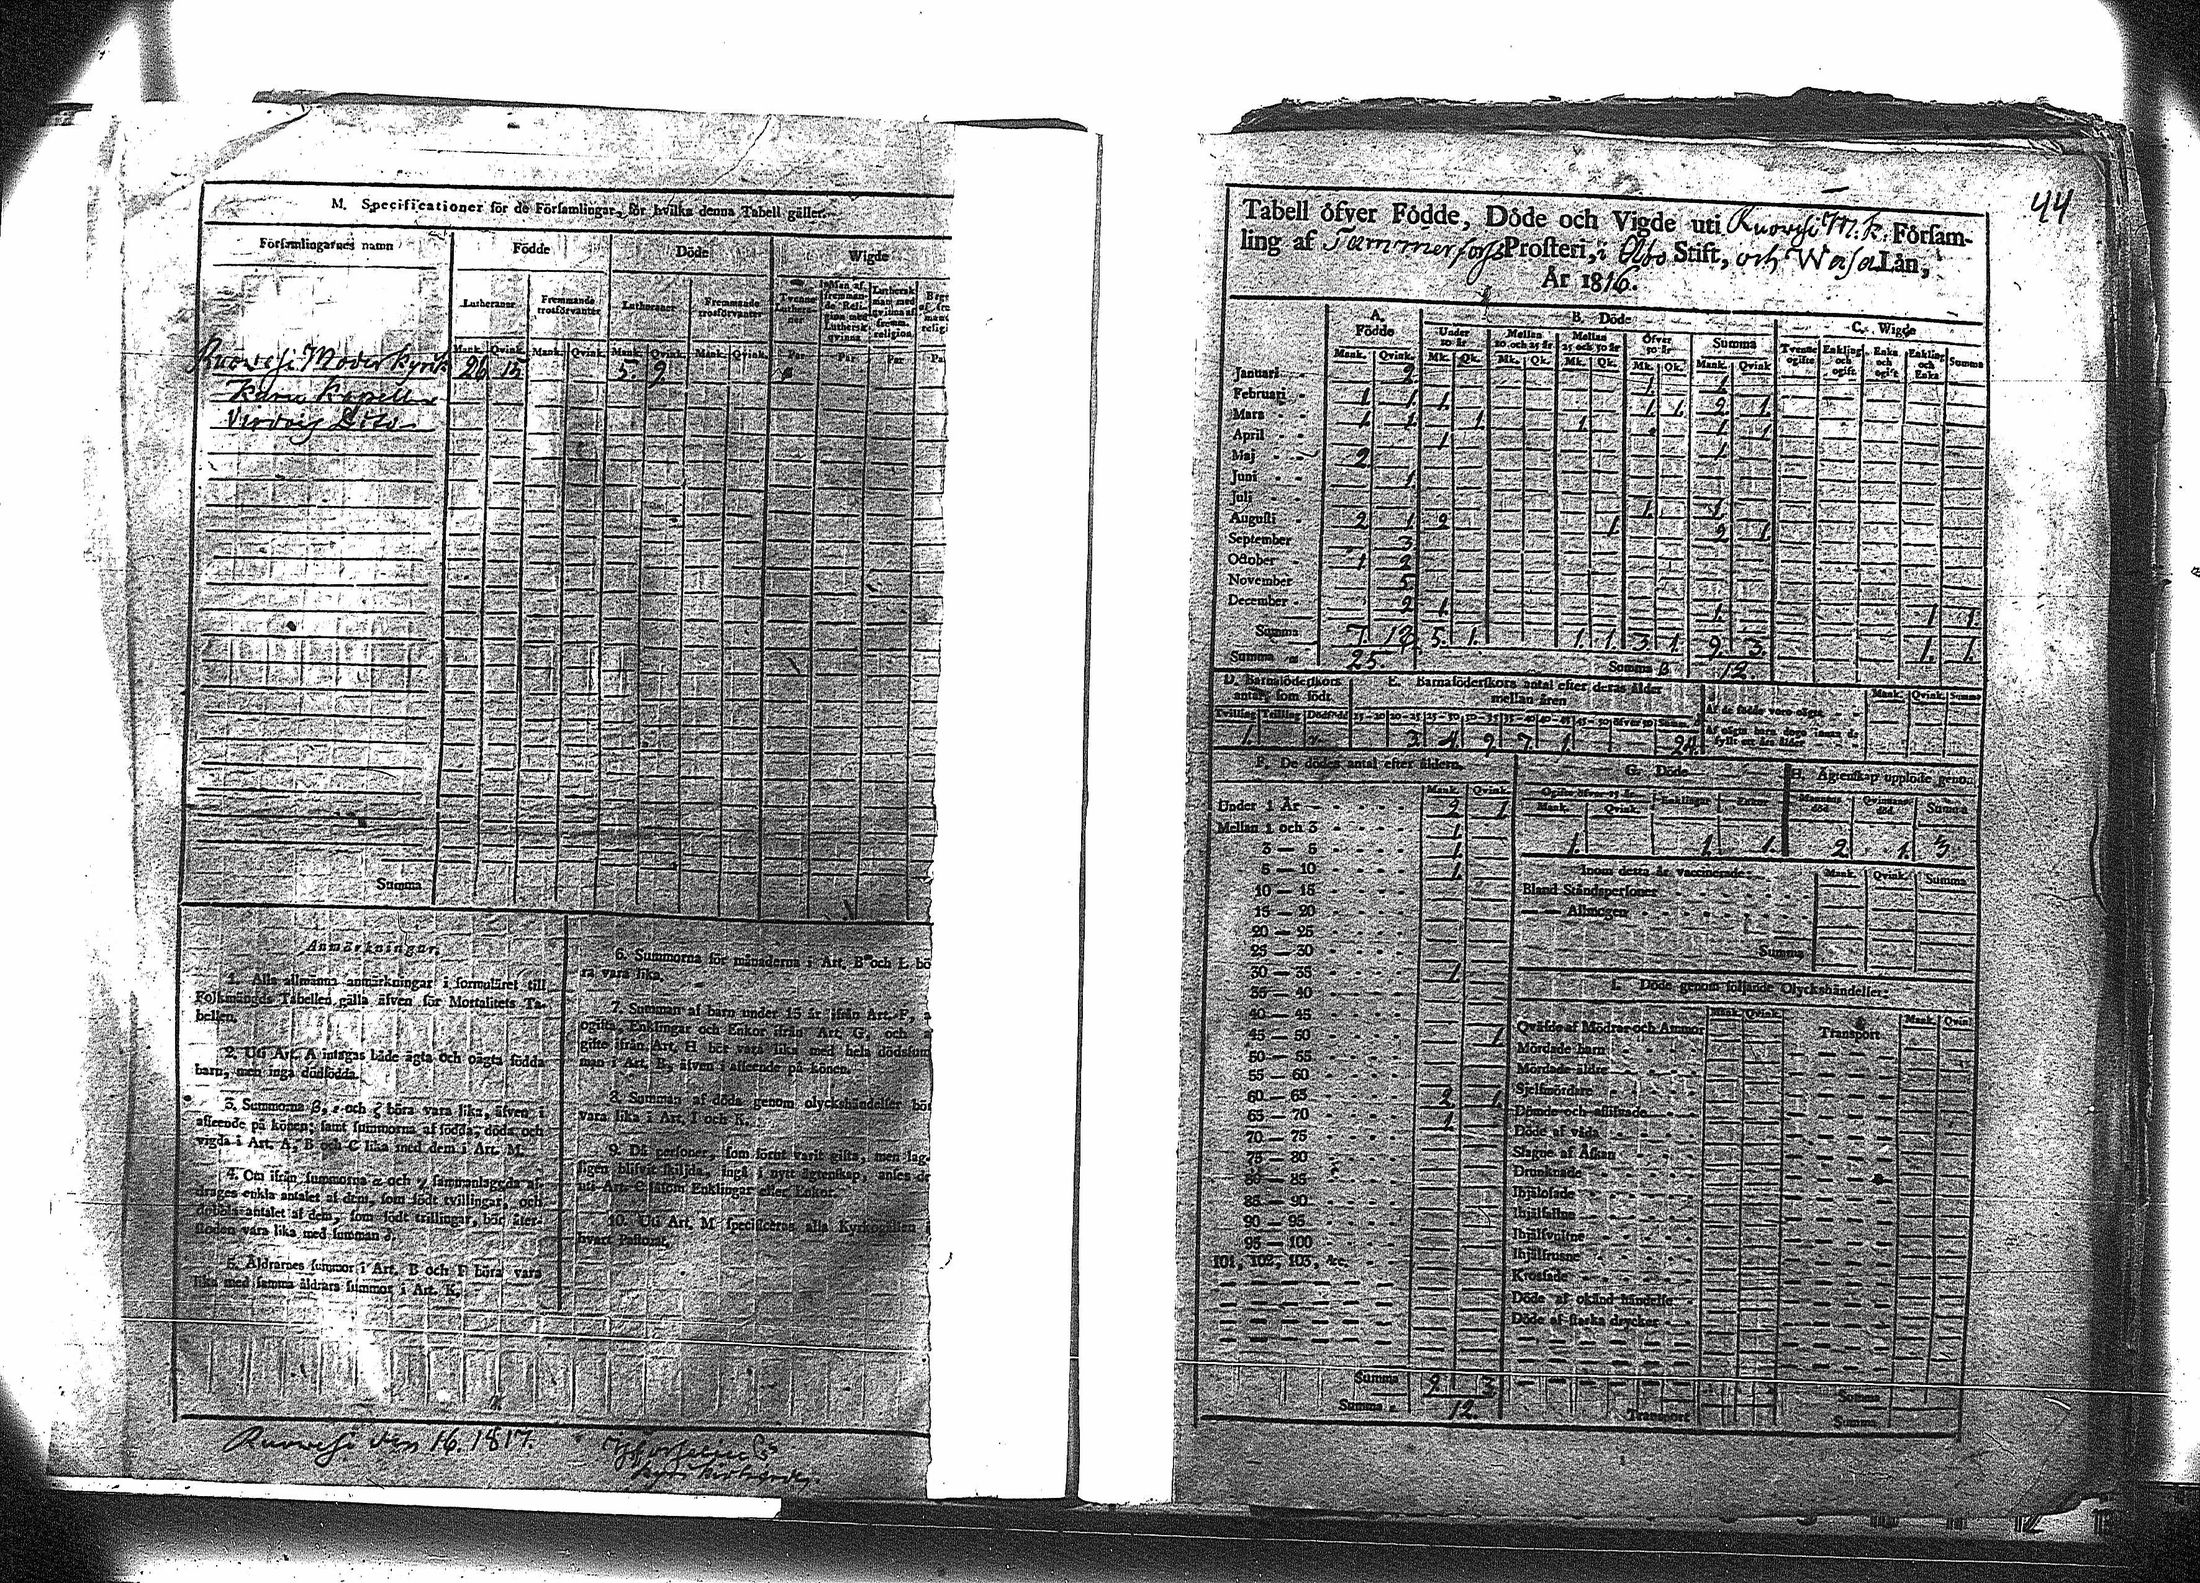 M. Specificationer för de Församlingar, för hvilka denna Tabell gäller.
Församlingarnes namn
Födde
Döde
Wigde
Lutheraner
Fremmande trosförvanter
Lutheraner
Fremmande trosförvanter
Mank. Qvink. Mank. Qvink. Mank. Qvink. Mank. Qvink. Par Par Par
Ruovesi Moder Kyrk. 26 15 5. 9.
Summa
Anmärkningar.
1. Alla allmänna anmärkningar i formuläret till
Folkmängds Tabellen gälla äfven för Mortalitets Ta-
bellen.
2. Uti Art. A intagas både ägta och oägta födda
barn, men inga dödfödda.
3. Summorna β, ε och ζ böra vara lika, äfven i
afseende på könen; samt summorna af födda, döda och
vigda i Art. A, B och C lika med dem i Art. M.
4. Om ifrån summorna α och γ sammanlaggda af-
drages enkla antalet af dem, som födt tvillingar, och
dubbla antalet af dem, som födt trillingar, bör åter-
stoden vara lika med summan δ.
5. Åldrarnes summor i Art. B och F böra vara
lika med samma åldrars summor i Art. K.
6. Summorna för månaderna i Art. B och L bö
ra vara lika.
7. Summan af barn under 15 år ifrån Art. F,
ogifta, Enklingar och Enkor ifrån Art. G, och
gifte ifrån Art. H bör vara lika med hela dödsum
man i Art. B, äfven i afseende på könen.
8. Summan af döda genom olyckshändelser bör
vara lika i Art. I och K.
9. Då personer, som förut varit gifta, men lag-
ligen blifvit skiljda, ingå i nytt ägtenskap, anses de
uti Art. C såsom Enklingar eller Enkor.
10. Uti Art. M specificeras alla Kyrkogällen i
hvart Pastorat.
Ruovesi den 16. 1817.
44
Tabell öfver Födde, Döde och Vigde uti Ruovesi M.k. Församling
af Tammerfors Prosteri, i Åbo Stift, och Wasa Län,
År 1816.
A. Födde
B. Döde
C. Wigde
Under 10 år
Mellan 10 och 25 år
Mellan 25 och 50 år
Öfver 50 år
Summa
Tvenne ogifte
Enkling och ogift
Enka och ogift
Enkling och Enka
Summa
Mank. Qvink. Mk. Qk. Mk. Qk. Mk. Qk. Mk. Qk. Mank. Qvink
Januari 2. 1. 1.
Februari 1. 1. 1. 1. 1. 2. 1.
Mars 1. 1. 1. 1. 1. 1.
April 1. 1.
Maj 2
Juni 1.
Juli 1. 1.
Augusti 2 1. 2 1. 2 1.
September 3
October 1 2
November 5
December 2 1. 1. 1. 1.
Summa 7. 18. 5. 1. 1. 1. 3. 1. 9. 3. 1. 1.
Summa α 25. Summa β 12.
D. Barnaföderskors antal, som födt
E. Barnaföderskors antal efter deras ålder mellan åren
Tvilling Trilling Dödfödt 15-20 20-25 25-30 30-35 35-40 40-45 45-50 öfver 50 Summ. δ
1. 3. 4. 9. 7. 1. 24.
Af de födde voro oägta
Af oägta barn dogo innan de fyllt ett års ålder
Mank. Qvink. Summa
F. De dödas antal efter åldern.
Mank. Qvink.
Under 1 År 2 1
Mellan 1 och 3 1.
3 — 5 1.
5 — 10 1.
10 — 15
15 — 20
20 — 25
25 — 30
30 — 35 1.
35 — 40
40 — 45
45 — 50 1
50 — 55
55 — 60
60 — 65 2 1.
65 — 70 1.
70 — 75
75 — 80
80 — 85
85 — 90
90 — 95
95 — 100
101, 102, 103, &c.
Summa 9 3
Summa ε 12.
G. Döde
Ogifte öfver 15 år
Enklingar
Enkor
Mank. Qvink.
1. 1. 1.
H. Ägtenskap upplöste genom
Mannens död.
Qvinnans död.
Summa
2. 1. 3
Inom detta år vaccinerade
Mank. Qvink. Summa
Bland Ståndspersoner
— — Allmogen
Summa
I. Döde genom följande Olyckshändelser:
Mank. Qvink.
Qväfde af Mödrar och Ammor
Mördade barn
Mördade äldre
Sjelfmördare
Dömde och aflifvade
Döde af våda
Slagne af Åskan
Drunknade
Ihjälösade
Ihjälfallna
Ihjälsvultne
Ihjälfrusne
Krossade
Döde af okänd händelse
Döde af starka drycker
Transport
Transport
Mank. Qvink
Summa
Summa